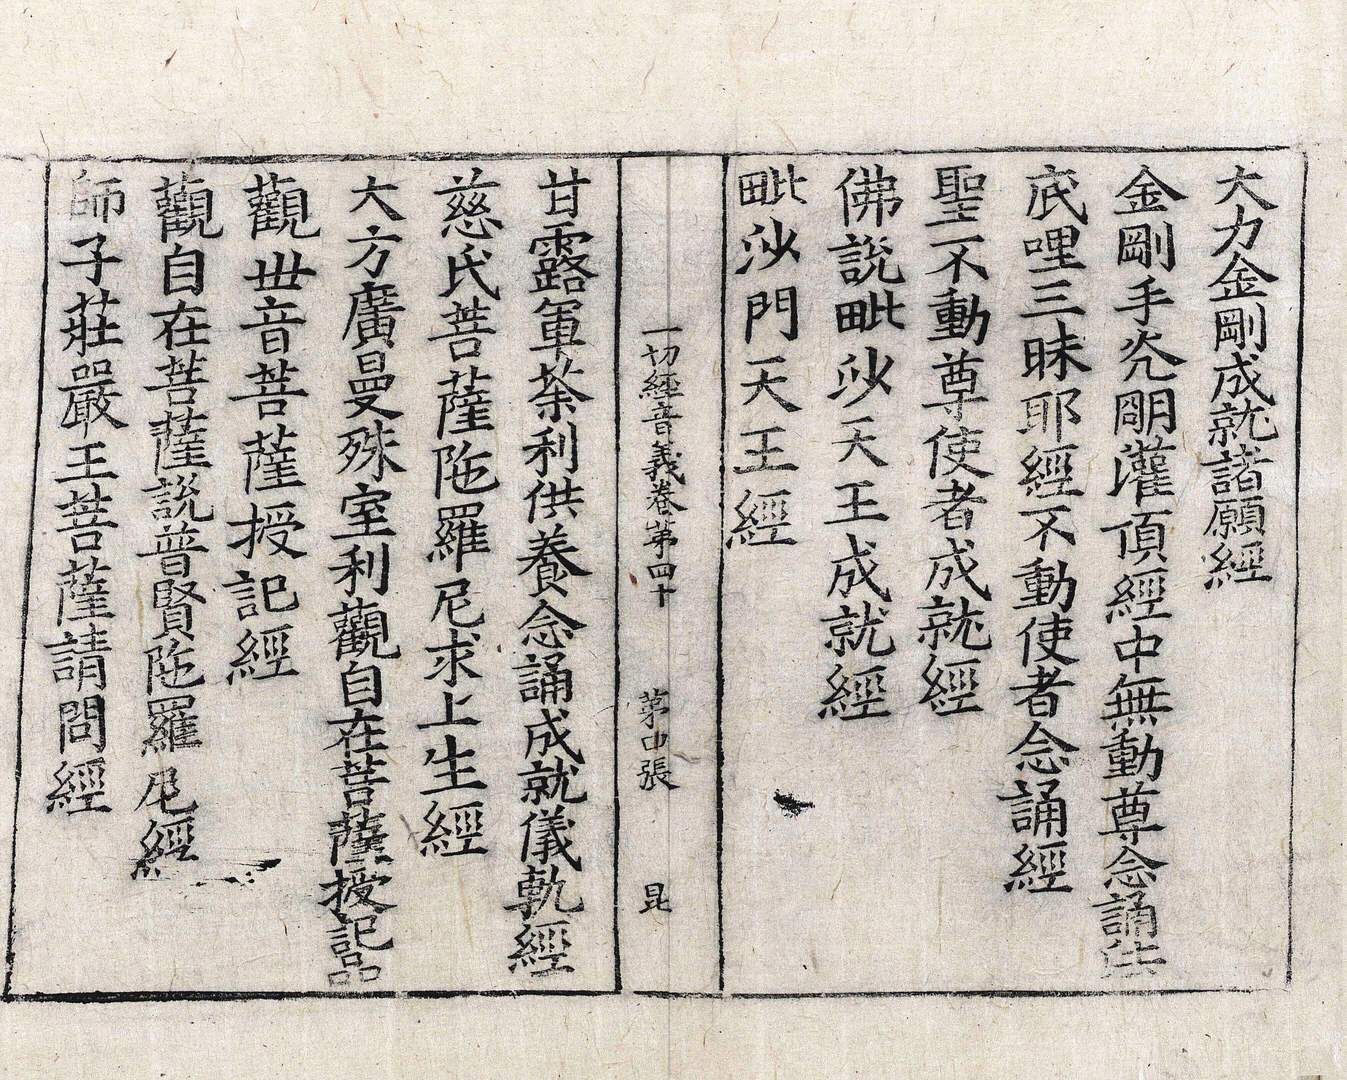 大力金剛成就諸願經
金剛手光明灌頂經中無動尊念誦法
底哩三昧耶經不動使者念誦經
聖不動尊使者成就經
佛說毗沙天王成就經
毗沙門天王經
一切經音義卷第四十 第口張 昆
甘露軍荼利供養念誦成就儀軌經
慈氏菩薩陁羅尼求上生經
大方廣曼殊室利觀自在菩薩授記品
觀世音菩薩授記經
觀自在菩薩說普賢陁羅尼經
師子莊嚴王菩薩請問經